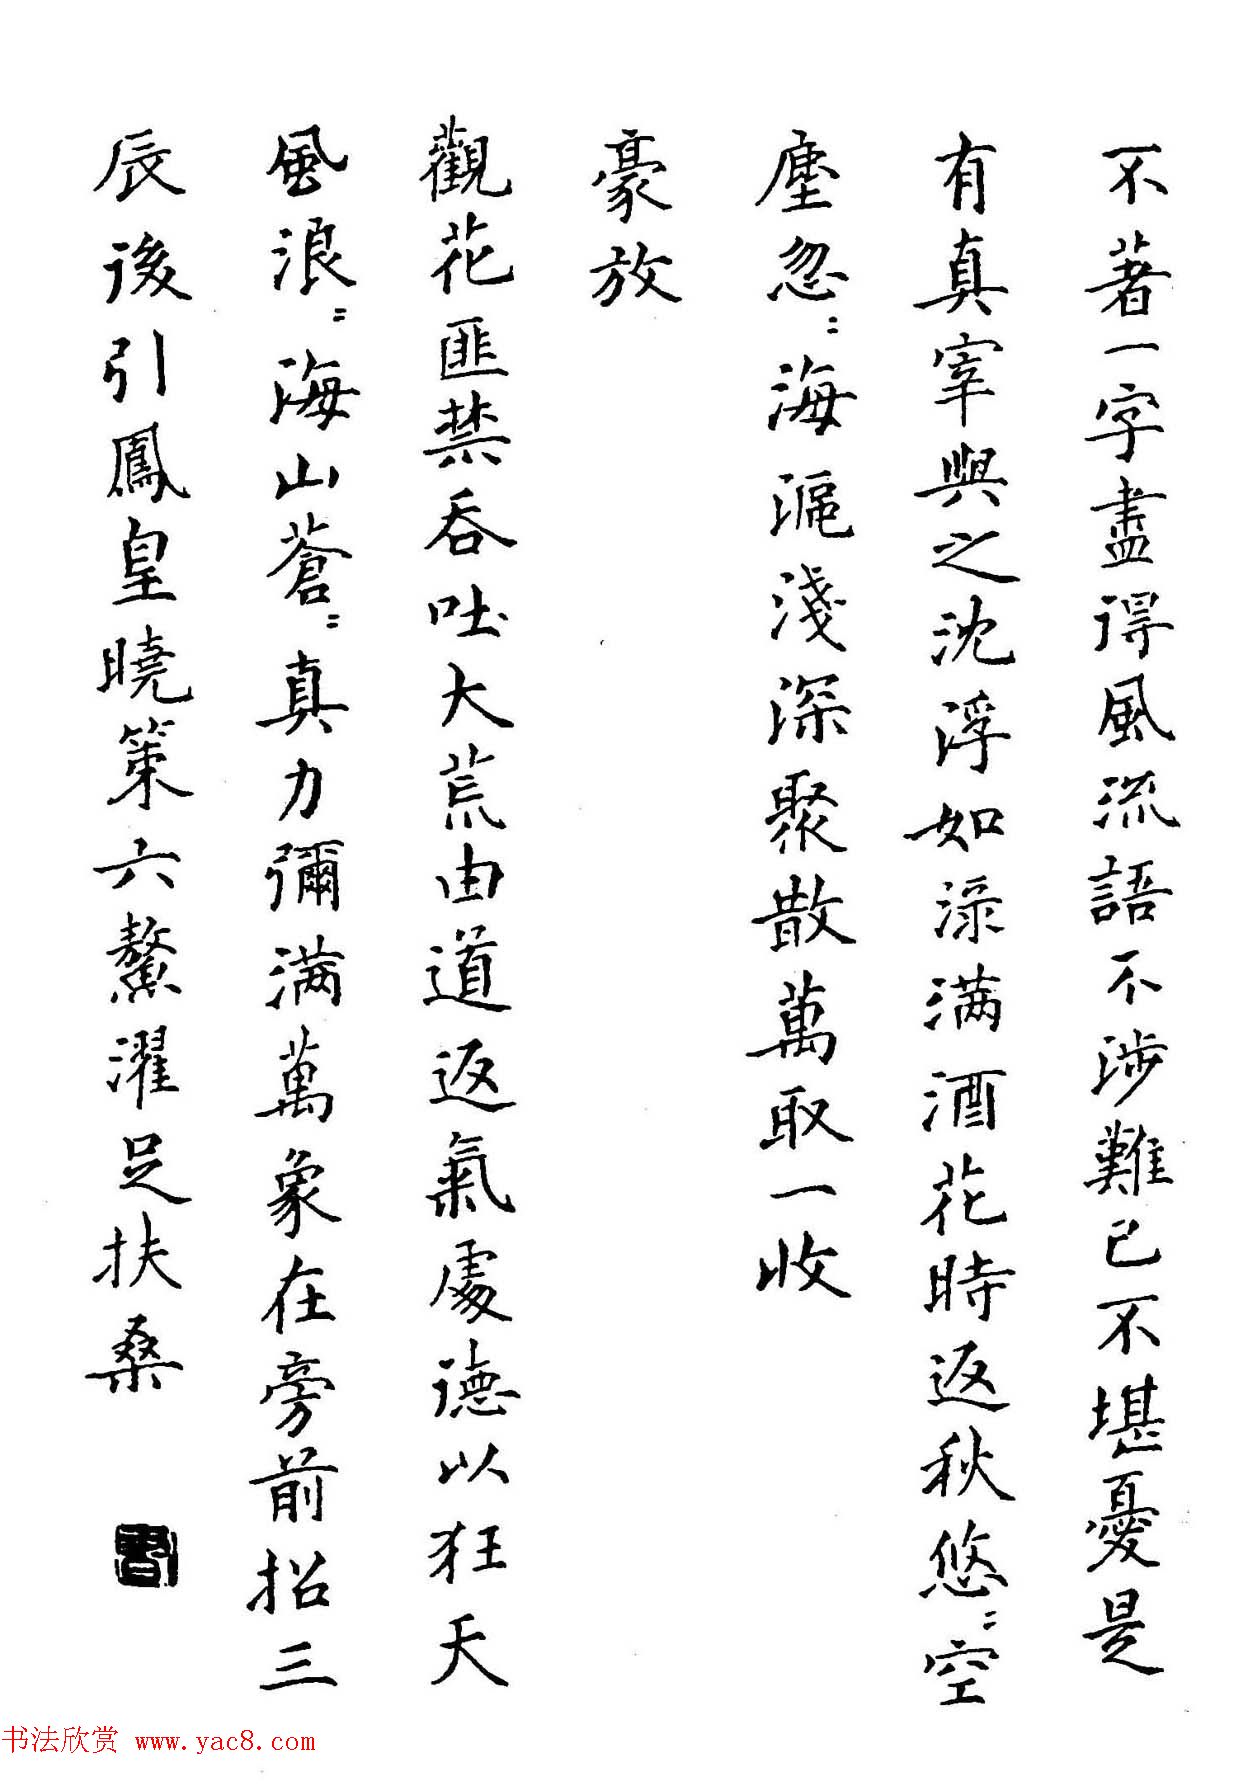 不著一字盡得風流語不涉難已不堪憂是
有真宰與之沈浮如淥满酒花時返秋悠〻空
塵忽〻海漚淺深聚散萬取一收
豪放
觀花匪禁吞吐大荒由道返氣處德以狂天
風浪〻海山蒼〻真力彌满萬象在旁前招三
辰後引鳳皇曉策六鰲濯足扶桑
书法欣赏 www.yac8.com